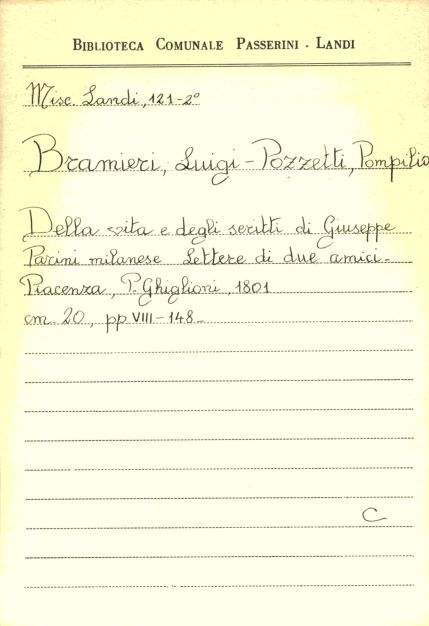 BIBLIOTECA COMUNALE PASSERINI - LANDI
Misc. Landi, 121-2º
Bramieri, Luigi - Pozzetti, Pompilio
Della vita e degli scritti di Giuseppe
Parini milanese Lettere di due amici -
Piacenza, P. Ghiglioni, 1801
cm. 20, pp VIII-148-
C